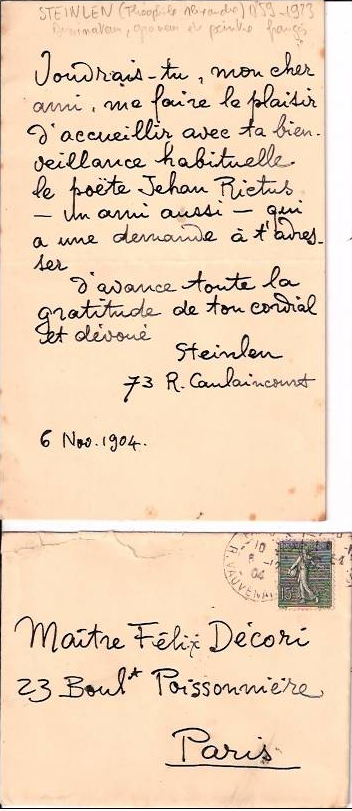 STEINLEN (Théophile Alexandre) 1859-1923
Dessinateur, graveur et peintre français
Voudrais-tu, mon cher
ami, me faire le plaisir
d'accueillir avec ta bien-
veillance habituelle
le poëte Jehan Rictus
— un ami aussi — qui
a une demande à t'adres-
ser
d'avance toute la
gratitude de ton cordial
et dévoué
Steinlen
73 R. Caulaincourt
6 Nov. 1904.
R. VAUVENAR
10
04
Maître Félix Décori
23 Boult Poissonnière
Paris